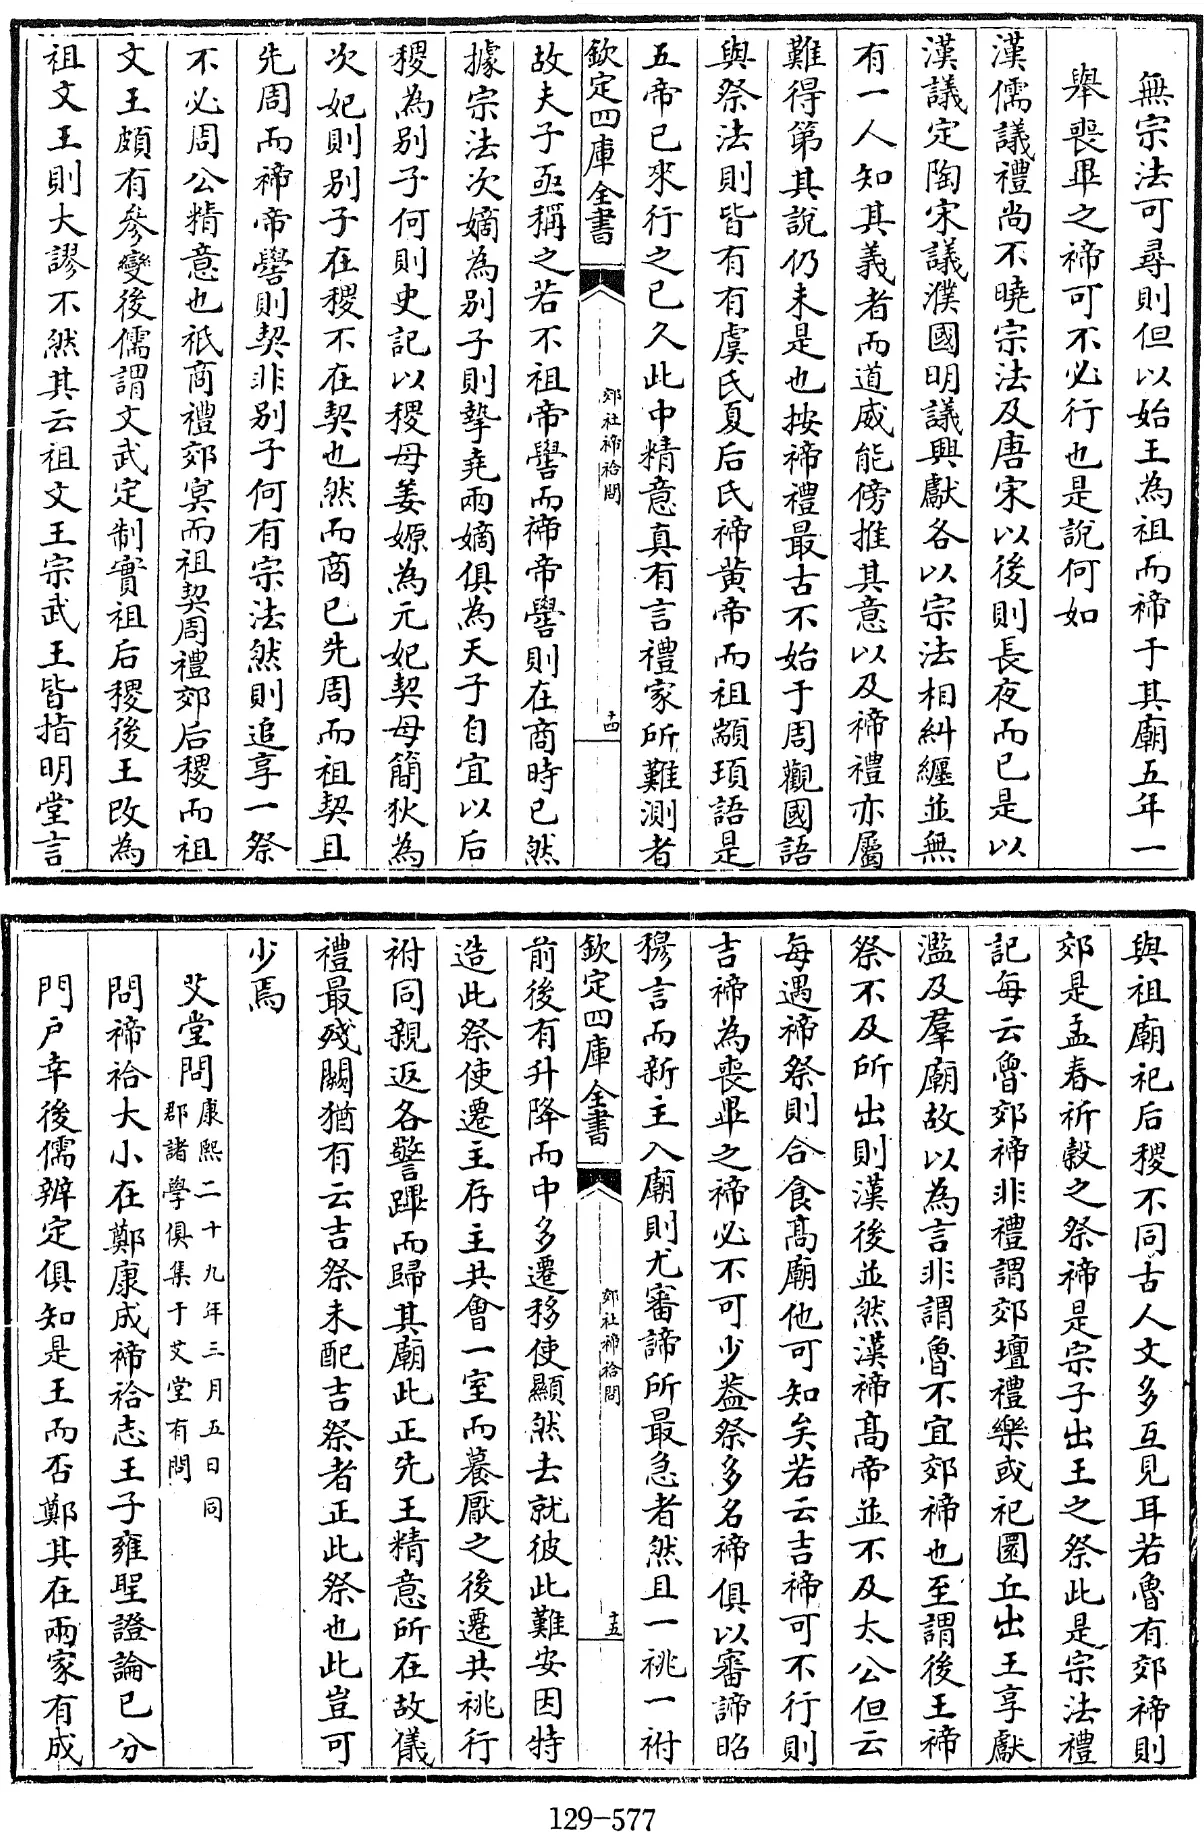 無宗法可尋則但以始王為祖而禘于其廟五年一
舉喪畢之禘可不必行也是說何如
漢儒議禮尚不曉宗法及唐宋以後則長夜而已是以
漢議定陶宋議濮國明議興獻各以宗法相糾纏並無
有一人知其義者而道威能傍推其意以及禘禮亦屬
難得第其說仍未是也按禘禮最古不始于周觀國語
與祭法則皆有有虞氏夏后氏禘黄帝而祖顓頊語是
五帝已來行之已久此中精意真有言禮家所難測者
欽定四庫全書
郊社禘祫問
十四
故夫子亟稱之若不祖帝嚳而禘帝嚳則在商時已然
據宗法次嫡為别子則摯堯兩嫡俱為天子自宜以后
稷為别子何則史記以稷母姜嫄為元妃契母簡狄為
次妃則别子在稷不在契也然而商已先周而祖契且
先周而禘帝嚳則契非别子何有宗法然則追享一祭
不必周公精意也祇商禮郊冥而祖契周禮郊后稷而祖
文王頗有參變後儒謂文武定制實祖后稷後王改為
祖文王則大謬不然其云祖文王宗武王皆指明堂言
與祖廟祀后稷不同古人文多互見耳若魯有郊禘則
郊是孟春祈穀之祭禘是宗子出王之祭此是宗法禮
記每云魯郊禘非禮謂郊壇禮樂或祀圜丘出王享獻
濫及羣廟故以為言非謂魯不宜郊禘也至謂後王禘
祭不及所出則漢後並然漢禘高帝並不及太公但云
每遇禘祭則合食高廟他可知矣若云吉禘可不行則
吉禘為喪畢之禘必不可少葢祭多名禘俱以審諦昭
穆言而新主入廟則尤審諦所最急者然且一祧一祔
欽定四庫全書
郊社禘祫問
十五
前後有升降而中多遷移使顯然去就彼此難安因特
造此祭使遷主存主共會一室而養厭之後遷共祧行
祔同親返各警蹕而歸其廟此正先王精意所在故儀
禮最殘闕猶有云吉祭未配吉祭者正此祭也此豈可
少焉
艾堂問康熙二十九年三月五日同
郡諸學俱集于艾堂有問
問禘祫大小在鄭康成禘祫志王子雍聖證論已分
門户幸後儒辨定俱知是王而否鄭其在兩家有成
129-577